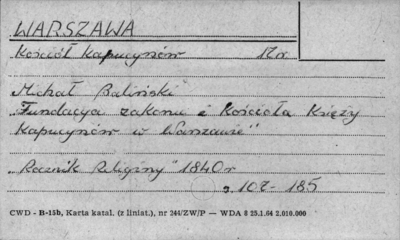 WARSZAWA
Kościół Kapucynów 17 r
Michał Baliński
"Fundacya zakonu i Kościoła Księży
Kapucynów w Warszawie"
"Rocznik Religijny" 1840 r
s. 107-185
CWD - B-15b, Karta katal. (z liniat.), nr 244/ZW/P — WDA 8 25.1.64 2.010.000